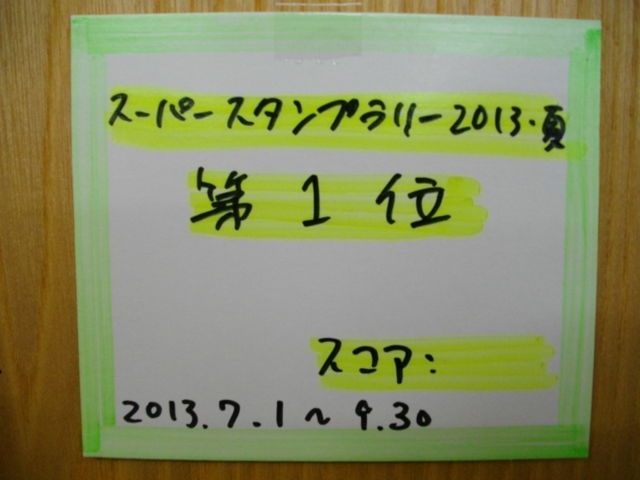 スーパースタンプラリー2013・夏
第1位
スコア:
2013.7.1〜9.30